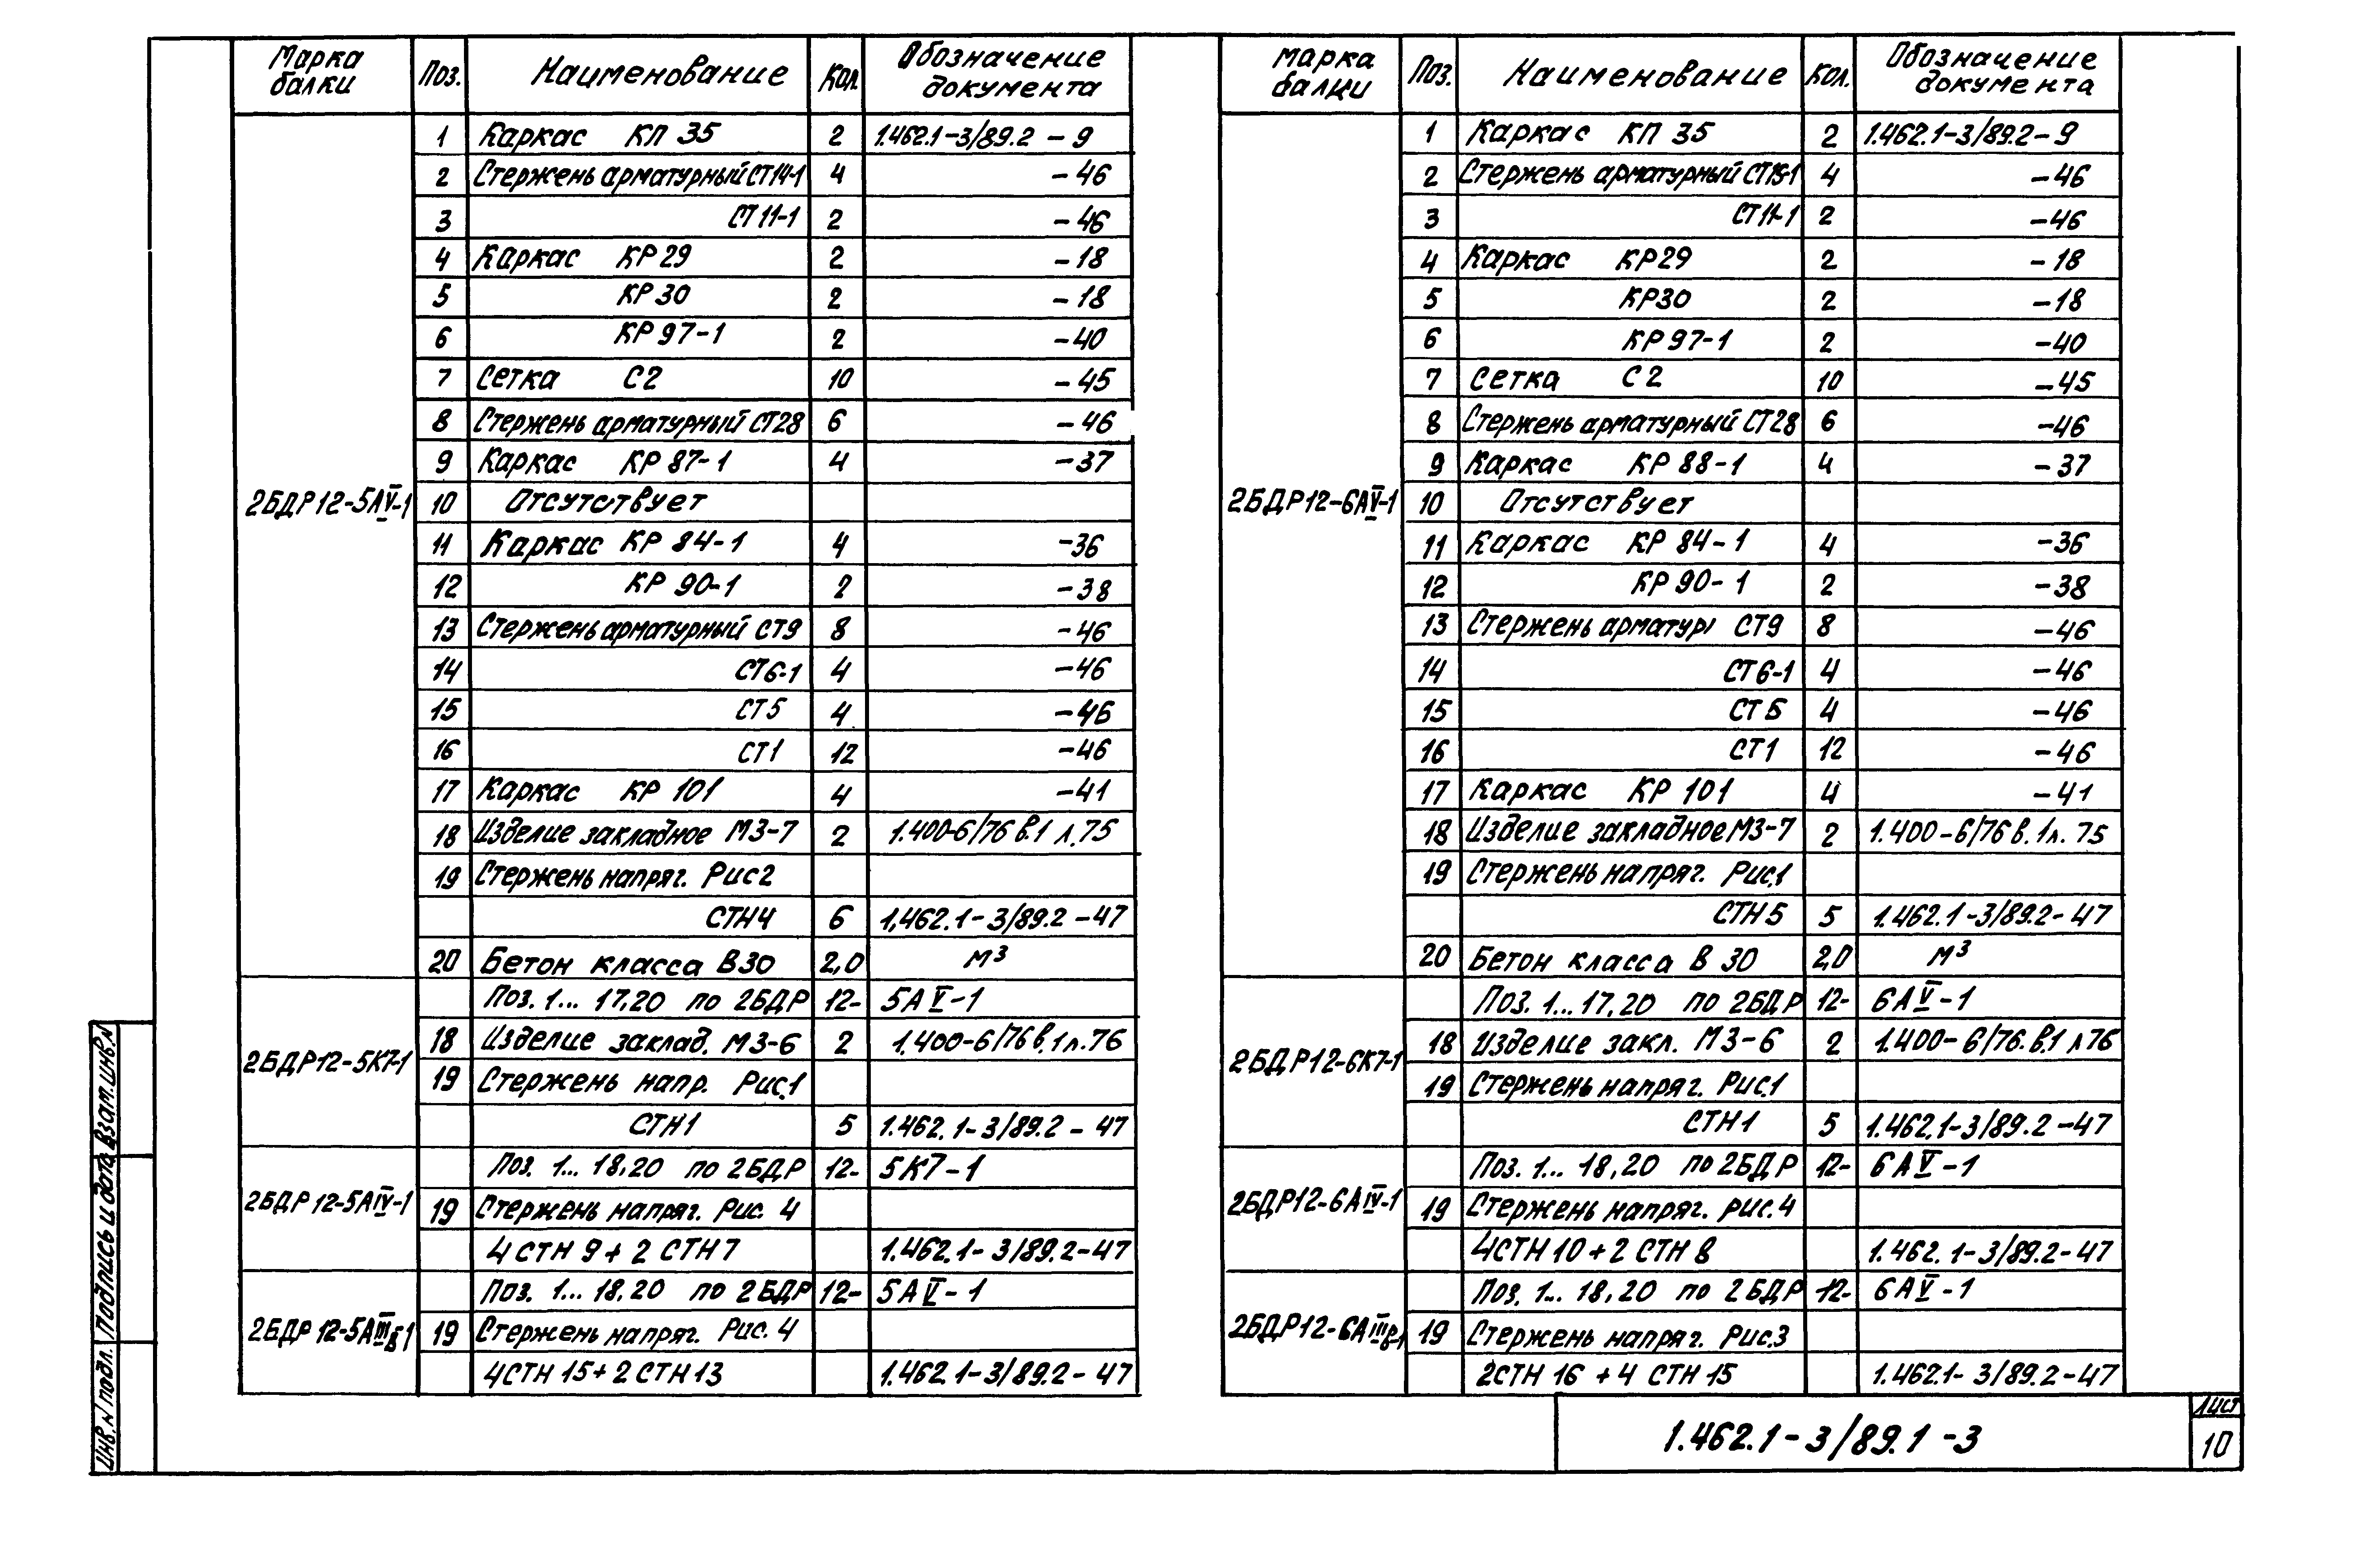 Марка балки Поз. Наименование Кол. Обозначение документа
2БДР12-5АⅤ-1
1 Каркас КП 35 2 1.462.1-3/89.2 - 9
2 Стержень арматурный СТ14-1 4 -46
3 СТ11-1 2 -46
4 Каркас КР29 2 -18
5 КР30 2 -18
6 КР97-1 2 -40
7 Сетка С2 10 -45
8 Стержень арматурный СТ28 6 -46
9 Каркас КР 87-1 4 -37
10 Отсутствует
11 Каркас КР 84-1 4 -36
12 КР 90-1 2 -38
13 Стержень арматурный СТ9 8 -46
14 СТ6-1 4 -46
15 СТ5 4 -46
16 СТ1 12 -46
17 Каркас КР 101 4 -41
18 Изделие закладное МЗ-7 2 1.400-6/76 в.1 л.75
19 Стержень напряг. Рис2
СТН4 6 1.462.1-3/89.2-47
20 Бетон класса В30 2,0 м³
2БДР12-5К7-1
Поз. 1... 17,20 по 2БДР 12- 5АⅤ-1
18 Изделие заклад. МЗ-6 2 1.400-6/76 в.1 л.76
19 Стержень напр. Рис.1
СТН1 5 1.462.1-3/89.2 - 47
2БДР12-5АⅣ-1
Поз. 1... 18,20 по 2БДР 12- 5К7-1
19 Стержень напряг. Рис. 4
4 СТН 9 + 2 СТН7 1.462.1-3/89.2-47
2БДР12-5АⅢв-1
Поз. 1... 18,20 по 2БДР 12- 5АⅤ-1
19 Стержень напряг. Рис. 4
4СТН 15 + 2 СТН 13 1.462.1-3/89.2-47
Марка балки Поз. Наименование Кол. Обозначение документа
2БДР12-6АⅤ-1
1 Каркас КП 35 2 1.462.1-3/89.2-9
2 Стержень арматурный СТ15-1 4 -46
3 СТ11-1 2 -46
4 Каркас КР29 2 -18
5 КР30 2 -18
6 КР97-1 2 -40
7 Сетка С2 10 -45
8 Стержень арматурный СТ28 6 -46
9 Каркас КР 88-1 4 -37
10 Отсутствует
11 Каркас КР 84-1 4 -36
12 КР 90-1 2 -38
13 Стержень арматур СТ9 8 -46
14 СТ6-1 4 -46
15 СТ5 4 -46
16 СТ1 12 -46
17 Каркас КР 101 4 -41
18 Изделие закладное МЗ-7 2 1.400-6/76 в.1 л. 75
19 Стержень напряг. Рис.1
СТН5 5 1.462.1-3/89.2-47
20 Бетон класса В 30 2,0 м³
2БДР12-6К7-1
Поз. 1... 17,20 по 2БДР 12- 6АⅤ-1
18 Изделие закл. МЗ-6 2 1.400-6/76.в.1 л 76
19 Стержень напряг. Рис.1
СТН1 5 1.462.1-3/89.2-47
2БДР12-6АⅣ-1
Поз. 1... 18,20 по 2БДР 12- 6АⅤ-1
19 Стержень напряг. рис.4
4СТН 10 + 2 СТН 8 1.462.1-3/89.2-47
2БДР12-6АⅢв-1
Поз. 1... 18,20 по 2БДР 12- 6АⅤ-1
19 Стержень напряг. Рис.3
2СТН 16 + 4 СТН 15 1.462.1-3/89.2-47
Инв.№ подл. Подпись и дата Взам.инв.№
1.462.1-3/89.1-3
Лист
10